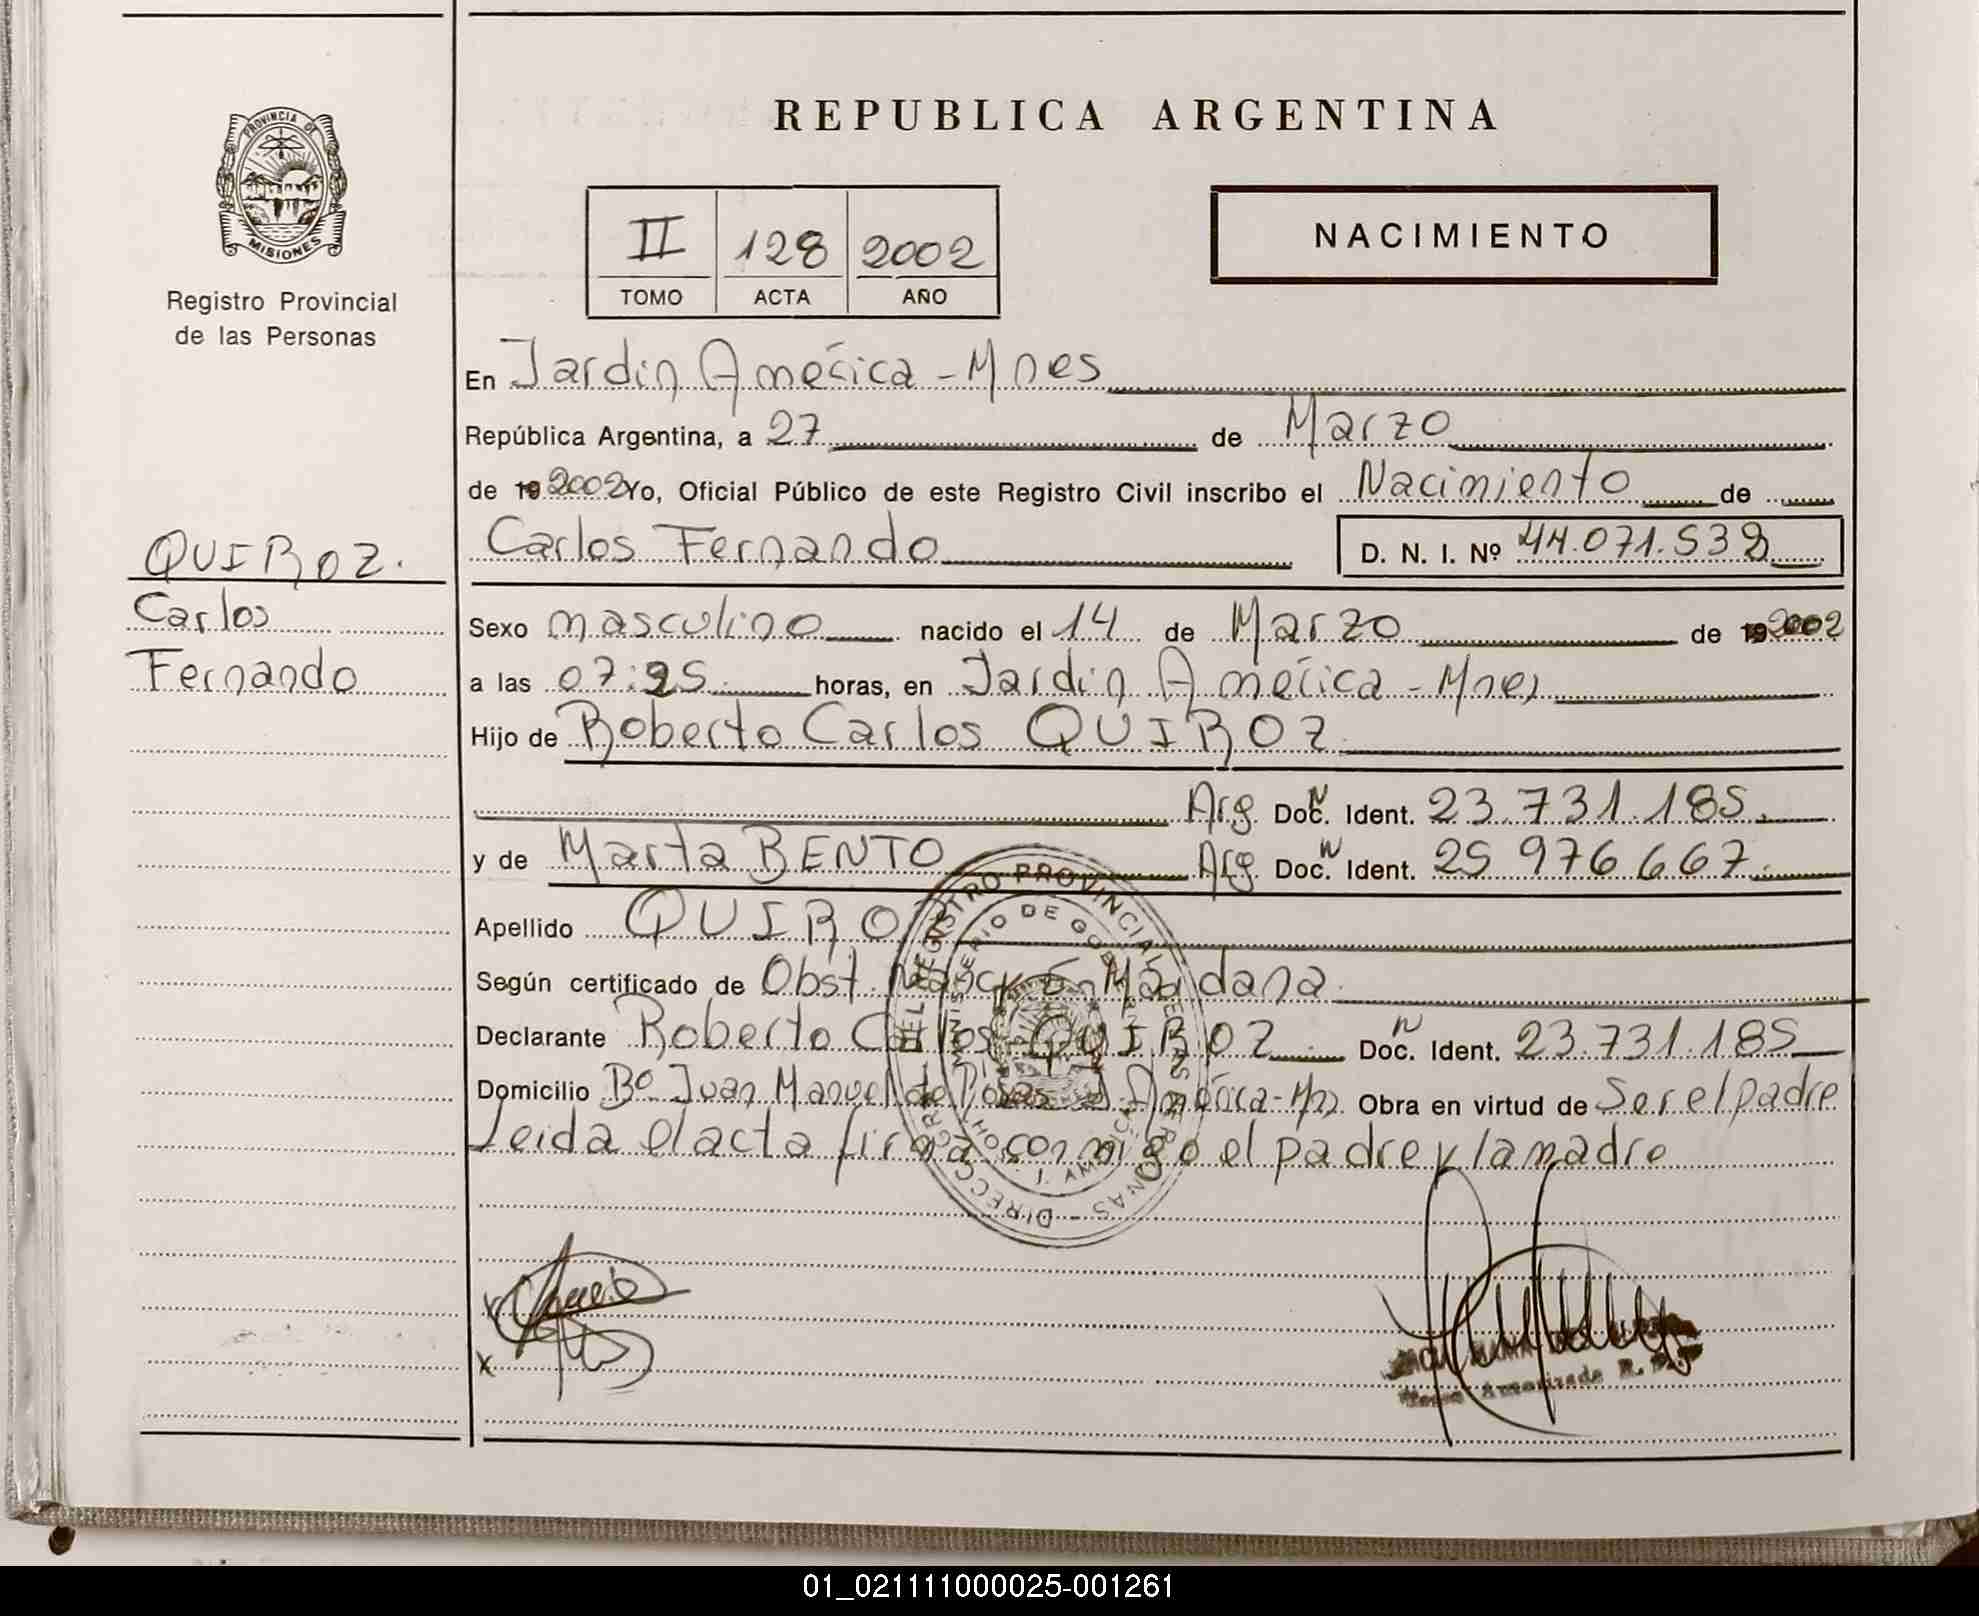 PROVINCIA DE
MISIONES
Registro Provincial
de las Personas
REPUBLICA ARGENTINA
II 128 2002
TOMO ACTA AÑO
NACIMIENTO
En Jardin América - Mnes
República Argentina, a 27 de Marzo
de 19 2002 Yo, Oficial Público de este Registro Civil inscribo el Nacimiento de
QUIROZ.
Carlos
Fernando
Carlos Fernando D. N. I. Nº 44.071.539
Sexo masculino nacido el 14 de Marzo de 19 2002
a las 07:25 horas, en Jardin América - Mnes
Hijo de Roberto Carlos QUIROZ
Arg Doc. N Ident. 23.731.185
y de Marta BENTO Arg Doc. N Ident. 25 976 667
Apellido QUIROZ
Según certificado de Obst. Nancy Maidana
Declarante Roberto Carlos QUIROZ Doc. N Ident. 23.731.185
Domicilio Bº Juan Manuel de Rosas J. América - Mns Obra en virtud de Ser el padre
Leida el acta firma conmigo el padre y la madre
x
x
01_021111000025-001261